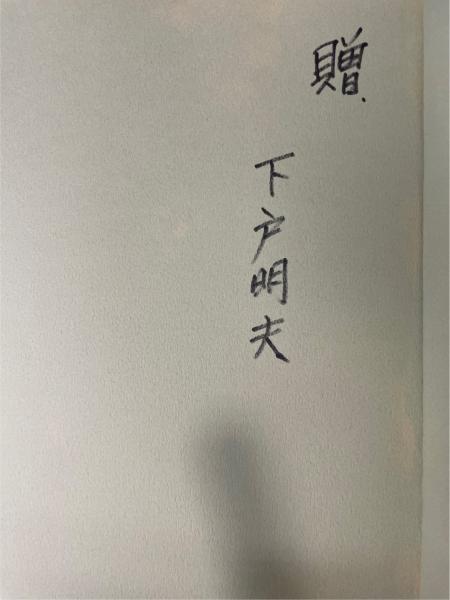 贈
下戸明夫